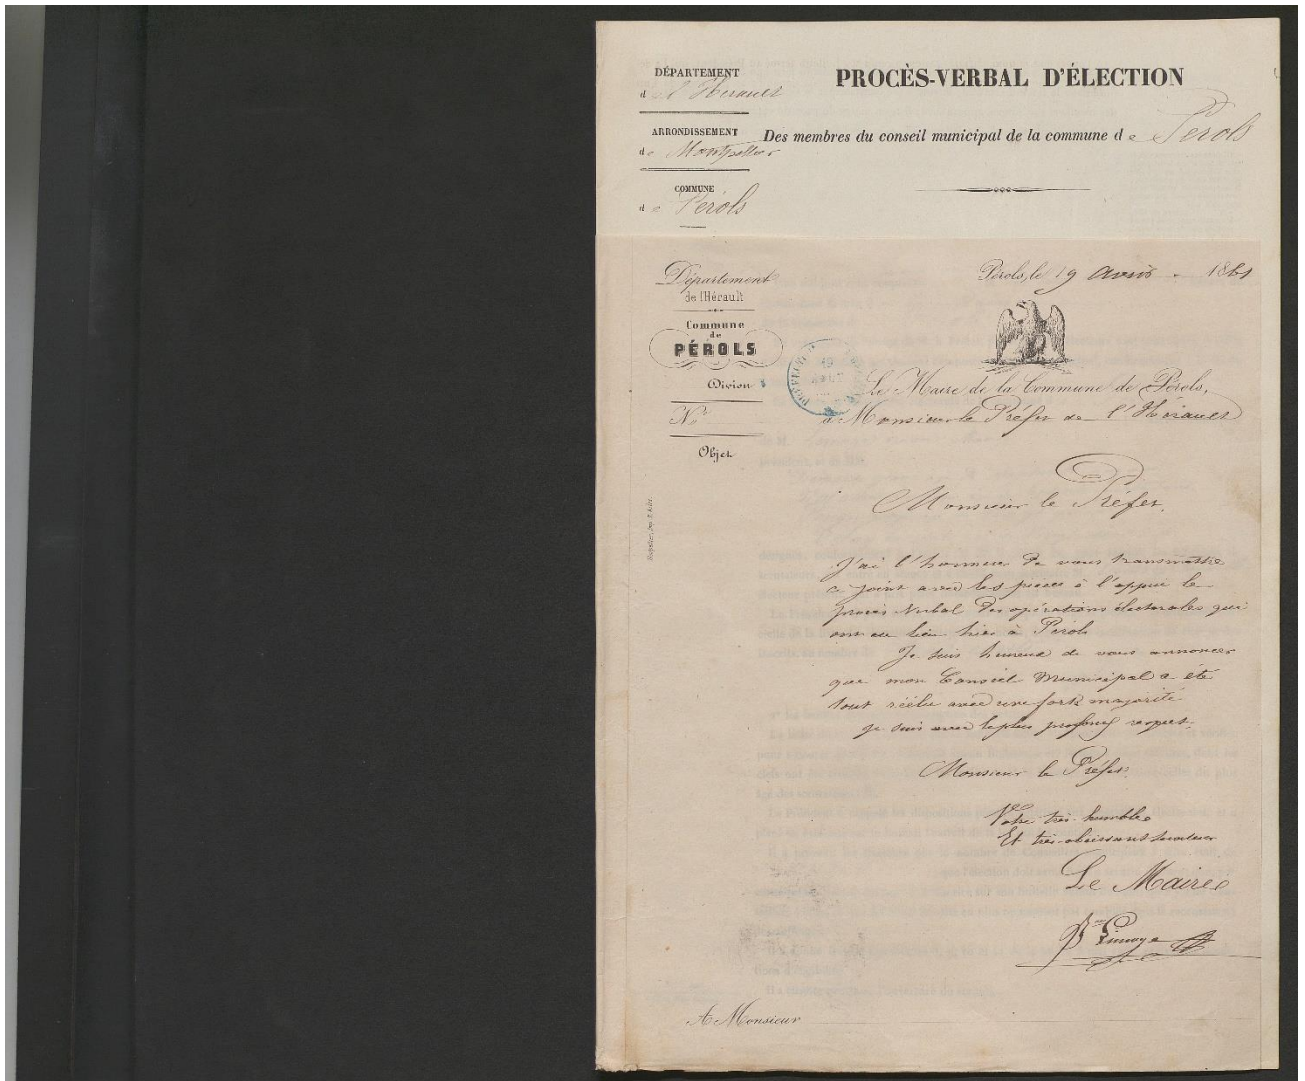 DÉPARTEMENT
d e l'Hérault
PROCÈS-VERBAL D'ÉLECTION
ARRONDISSEMENT
de Montpellier
Des membres du conseil municipal de la commune de Pérols
COMMUNE
de Pérols
Département
de l'Hérault
Commune
de
PÉROLS
Division
N°
Objet
Pérols, le 19 1861
19
Le Maire de la Commune de Pérols,
à Monsieur le Préfet de l'Hérault
Monsieur le Préfet,
J'ai l'honneur de vous transmettre
ci joint avec les pièces à l'appui le
procès verbal des opérations électorales qui
ont eu lieu hier à Pérols
Je suis heureux de vous annoncer
que mon Conseil Municipal a été
tout réélu avec une forte majorité
je suis avec le plus profond respect
Monsieur le Préfet
Votre très humble
Et très obéissant serviteur
Le Maire
A Monsieur